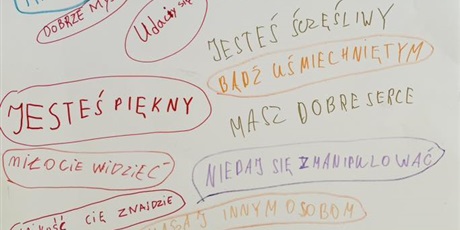 DOBRZE
Udaci się
JESTEŚ SZCZĘŚLIWY
BĄDŹ UŚMIECHNIĘTYM
JESTEŚ PIĘKNY
MASZ DOBRE SERCE
MIŁO CIE WIDZIEĆ
NIEDAJ SIĘ ZMANIPULOWAĆ
CIĘ ZNAJDZIE
INNYM OSOBOM